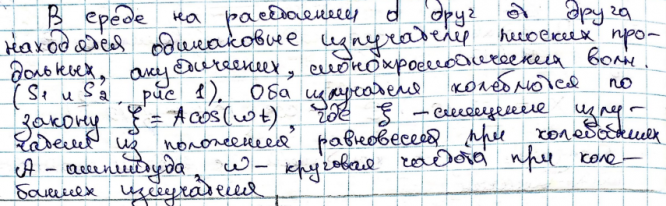 В среде на расстоянии d друг от друга
находятся одинаковые излучатели плоских про-
дольных, акустических, монохроматических волн.
(S₁ и S₂, рис 1). Оба излучателя колеблются по
закону ξ = A cos(ωt), где ξ - смещение излу-
чателя из положения, равновесия при колебаниях
A - амплитуда, ω - круговая частота при коле-
баниях излучателя